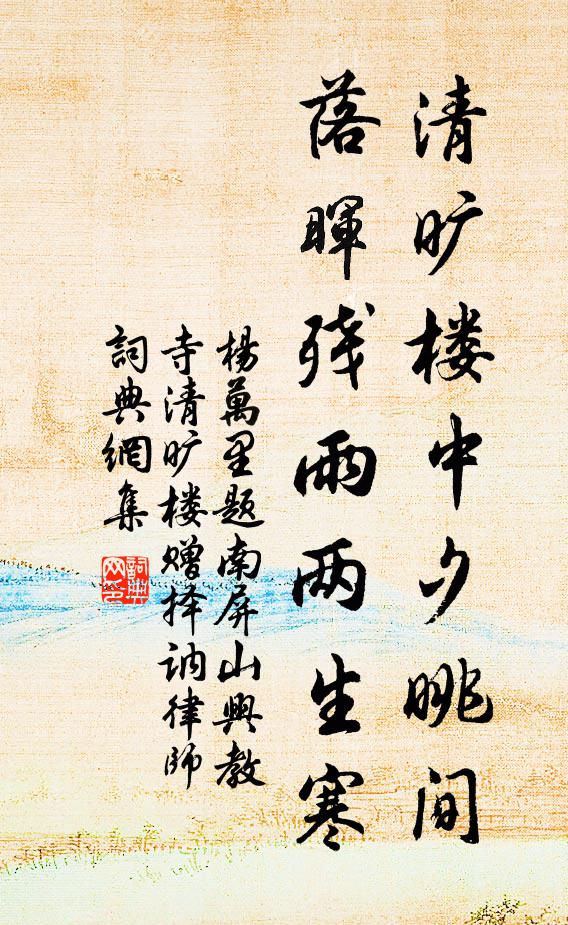 清旷楼中夕眺间
落暉残雨两生寒
楊萬里题南屏山興教
寺清旷楼赠择讷律师
詞典網集
詞典网图